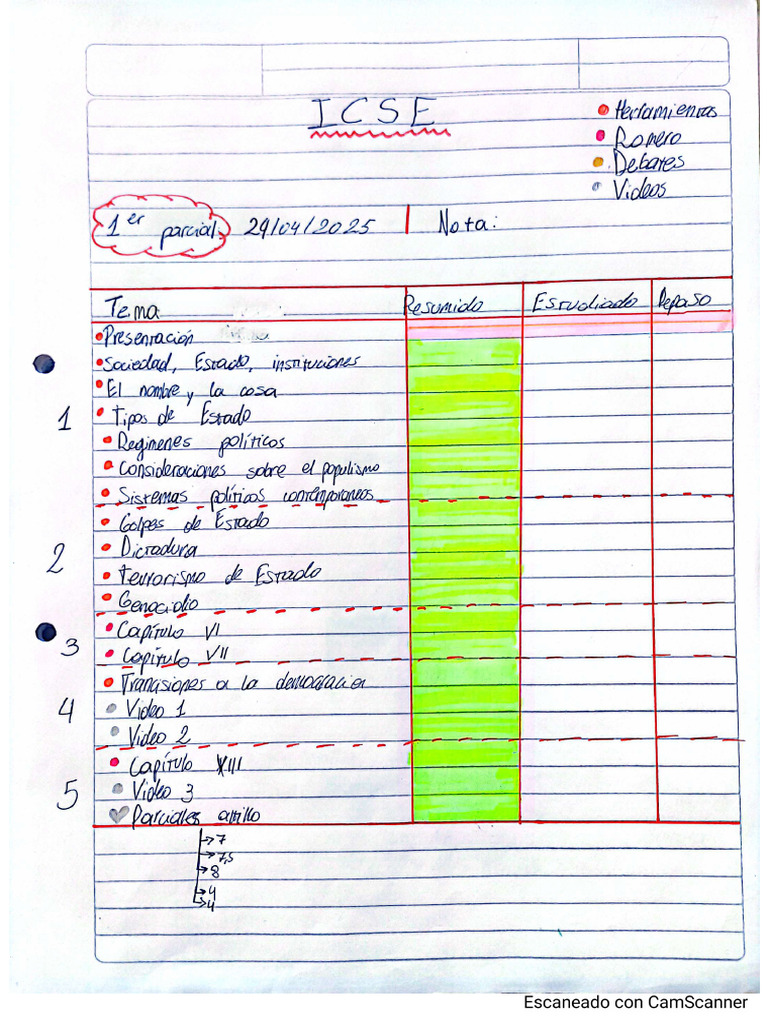 ICSE
Herramientas
Romero
Debates
Videos
1er parcial 29/04/2025 | Nota:
Tema Resumido Estudiado Repaso
Presentación
Sociedad, Estado, instituciones
El nombre y la cosa
1 Tipos de Estado
Regimenes políticos
Consideraciones sobre el populismo
Sistemas políticos contemporaneos
Golpes de Estado
2 Dictadura
Terrorismo de Estado
Genocidio
Capítulo VI
3 Capítulo VII
Transiciones a la democracia
4 Video 1
Video 2
Capítulo XIII
5 Video 3
Parciales altillo
→ 7
→ 7,5
→ 8
→ 4
→ 4
Escaneado con CamScanner